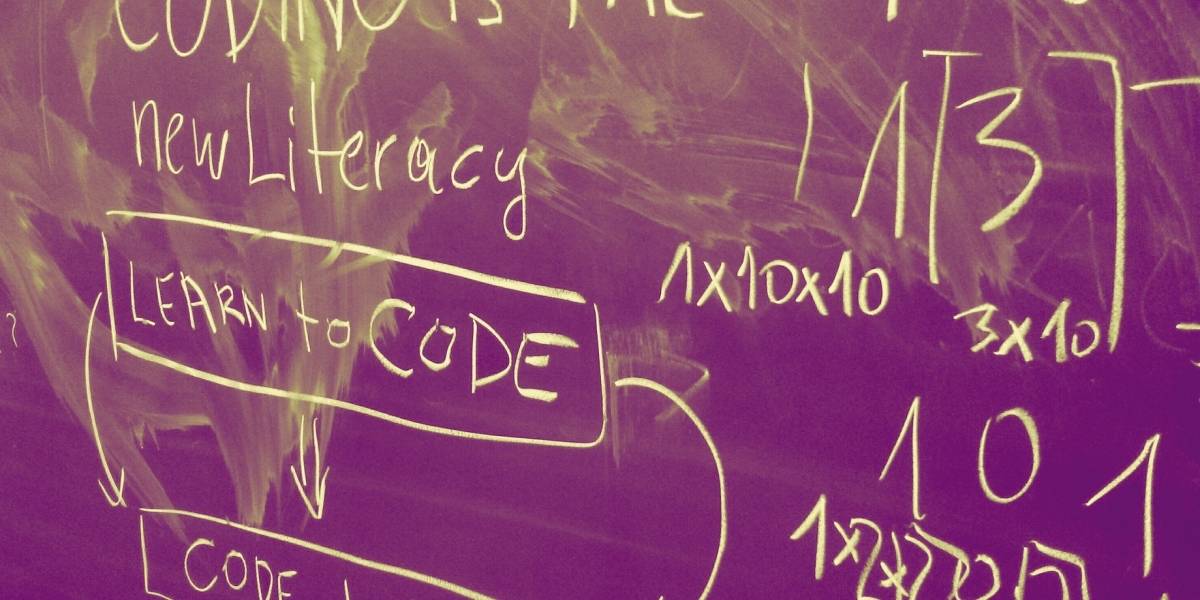 CODING IS THE
new Literacy
LEARN to CODE
CODE
1 3
1x10x10
3x10
1 0 1